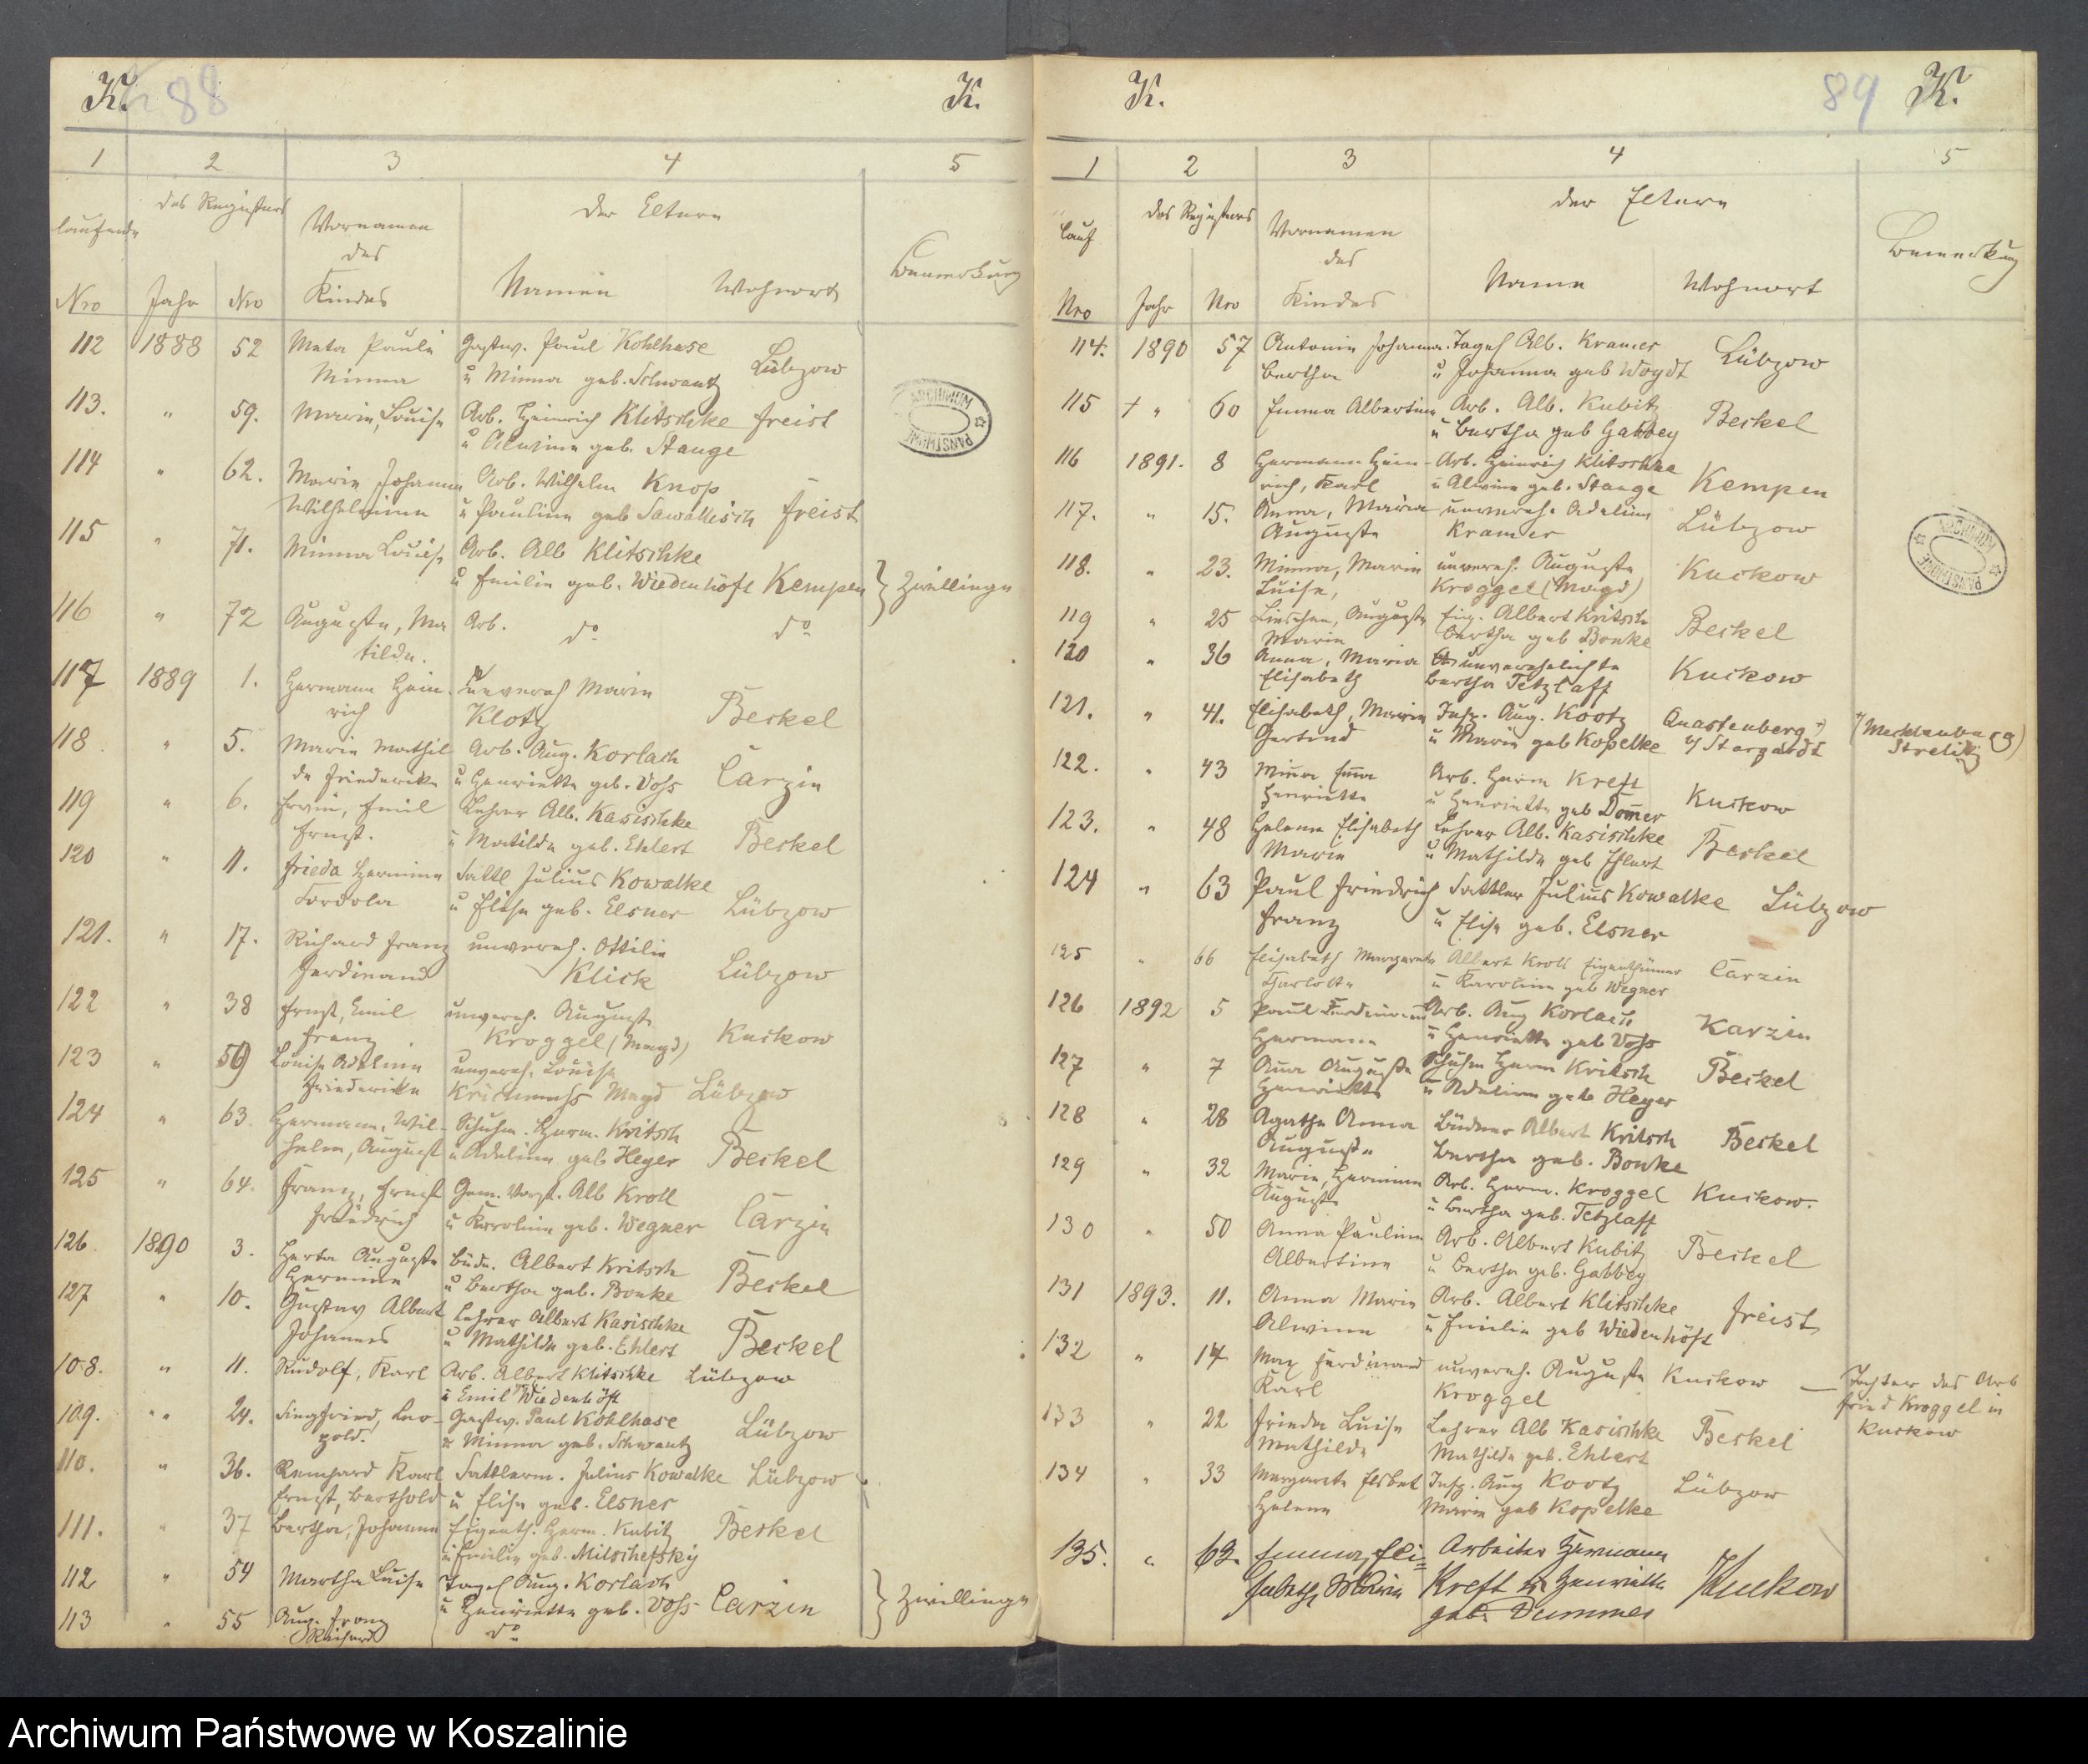 K. 88 K.
1 2 3 4 5
laufende des Registers Vornamen der Eltern Bemerkung
des
Nro Jahr Nro Kindes Namen Wohnort
112 1888 52 Meta Paula Gastw. Paul Kohlhase Lübzow
Minna u Minna geb. Schwantz
113. " 59. Marie, Louise Arb. Heinrich Klitschke Freist
u Alwine geb. Stange
114 " 62. Marie Johanna Arb. Wilhelm Knop
Wilhelmine u Pauline geb Sawallisch Freist
115 " 71. Minna Louise Arb. Alb Klitschke
u Emilie geb. Wiedenhöft Kempen } Zwillinge
116 " 72 Auguste, Ma Arb. do do
tilde.
117 1889 1. Hermann Hein- unvereh Marie
rich Klotz Beskel
118. " 5. Marie Mathil Arb. Aug. Korlach
de Friederike u Henriette geb. Voss Carzin
119 " 6. Erwin, Emil Lehrer Alb. Kasischke
Ernst. u Matilde geb. Ehlert Beskel
120 " 11. Frieda Hermine Sattl Julius Kowalke
u Elise geb. Elsner Lübzow
121. " 17. Richard Franz unvereh. Ottilie
Ferdinand Klick Lübzow
122 " 38 Ernst, Emil unvereh. Auguste
Franz Kroggel (Magd) Kuskow
123 " 59 Louise Adeline unvereh. Louise
Friederike Magd Lübzow
124 " 63. Hermann, Wil- Schuhm. Herm. Kritsch
helm, August u Adeline geb Heyer Beskel
125 " 64. Franz, Ernst Gem. Vorst. Alb Kroll
Friedrich u Karoline geb. Wegner Carzin
126. 1890 3. Herta Auguste Büdn. Albert Kritsch
Hermine u Bertha geb. Bonke Beskel
127 " 10. Gustav Albert Lehrer Albert Kasischke
Johannes u Mathilde geb. Ehlert Beskel
108. " 11. Rudolf, Karl Arb. Albert Klitschke Lübzow
u Emil Wiedenhöft
109. " 24. Siegfried, Leo- Gastw. Paul Kohlhase
pold. u Minna geb. Schwantz Lübzow
110. " 36. Reinhard Karl Sattlerm. Julius Kowalke Lübzow
Ernst, Berthold u Elise geb. Elsner
111. " 37 Bertha, Johanna Eigenth. Herm. Kubitz Beskel
u Emilie geb. Milschefsky
112 " 54 Martha Luise Tagel Aug. Korlach
u Henriette geb. Voss Carzin } Zwillinge
113 " 55 Aug. Franz do
Richard
K. 89 K.
1 2 3 4 5
Lauf des Registers Vornamen der Eltern Bemerkung
des
Nro Jahr Nro Kindes Name Wohnort
114. 1890 57 Antonie Johanna Tagel Alb. Kramer Lübzow
Bertha u Johanna geb Woydt
115 + " 60 Emma Albertine Arb. Alb. Kubitz Beskel
u Bertha geb Gabbey
116 1891. 8 Hermann Hein- Arb. Heinrich Klitschke
rich, Karl u Alwine geb. Stange Kempen
117. " 15. Anna, Maria unvereh. Adeline
Auguste Kramer Lübzow
118. " 23. Minna, Marie unvereh. Auguste
Luise, Kroggel (Magd) Kuskow
119 " 25 Lieschen, Auguste Eig. Albert Kritsch
Marie Bertha geb Bonke Beskel
120 " 36 Anna, Maria unverehelichte
Elisabeth Bertha Tetzlaff Kuskow
121. " 41. Elisabeth, Marie Insp. Aug. Kootz Quastenberg +) +) Mecklenburg
Gertrud u Marie geb Kopelke b/ Stargardt Strelitz)
122. " 43 Minna Emma Arb. Herm Kreft
Henriette u Henriette geb Dommer Kuskow
123. " 48 Helene Elisabeth Lehrer Alb. Kasischke
Marie u Mathilde geb Ehlert Beskel
124 " 63 Paul Friedrich Sattler Julius Kowalke Lübzow
Franz u Elise geb. Elsner
125 " 66 Elisabeth Margarete Albert Kroll Eigenthümer Carzin
u Karoline geb Wegner
126 1892 5 Paul Ferdinand Arb. Aug Korlach
Hermann u Henriette geb Voss Karzin
127 " 7 Anna Auguste Schuhm Herm Kritsch
Henriette u Adeline geb Heyer Beskel
128 " 28 Agathe Anna Büdner Albert Kritsch Beskel
Auguste Bertha geb. Bonke
129 " 32 Marie, Hermine Arb. Herm. Kroggel Kuskow.
Auguste u Bertha geb. Tetzlaff
130 " 50 Anna Pauline Arb. Albert Kubitz Beskel
Albertine u Bertha geb. Gabbey
131 1893. 11. Anna Marie Arb. Albert Klitschke
Alwine u Emilie geb Wiedenhöft Freist
132 " 17 Max Ferdinand unvereh. Auguste Kuskow — Tochter des Arb
Karl Kroggel Fried Kroggel in
Kuskow
133 " 22 Frieda Luise Lehrer Alb Kasischke Beskel
Mathilde Mathilde geb. Ehlert
134 " 33 Margarete Elsbet Insp. Aug Kootz Lübzow
Helene Marie geb Kopelke
135. " 63. Emma, Eli- Arbeiter Hermann
sabeth Maria Kreft u Henriette Kuskow
geb. Dummer
ARCHIWUM PAŃSTWOWE
ARCHIWUM PAŃSTWOWE
Archiwum Państwowe w Koszalinie